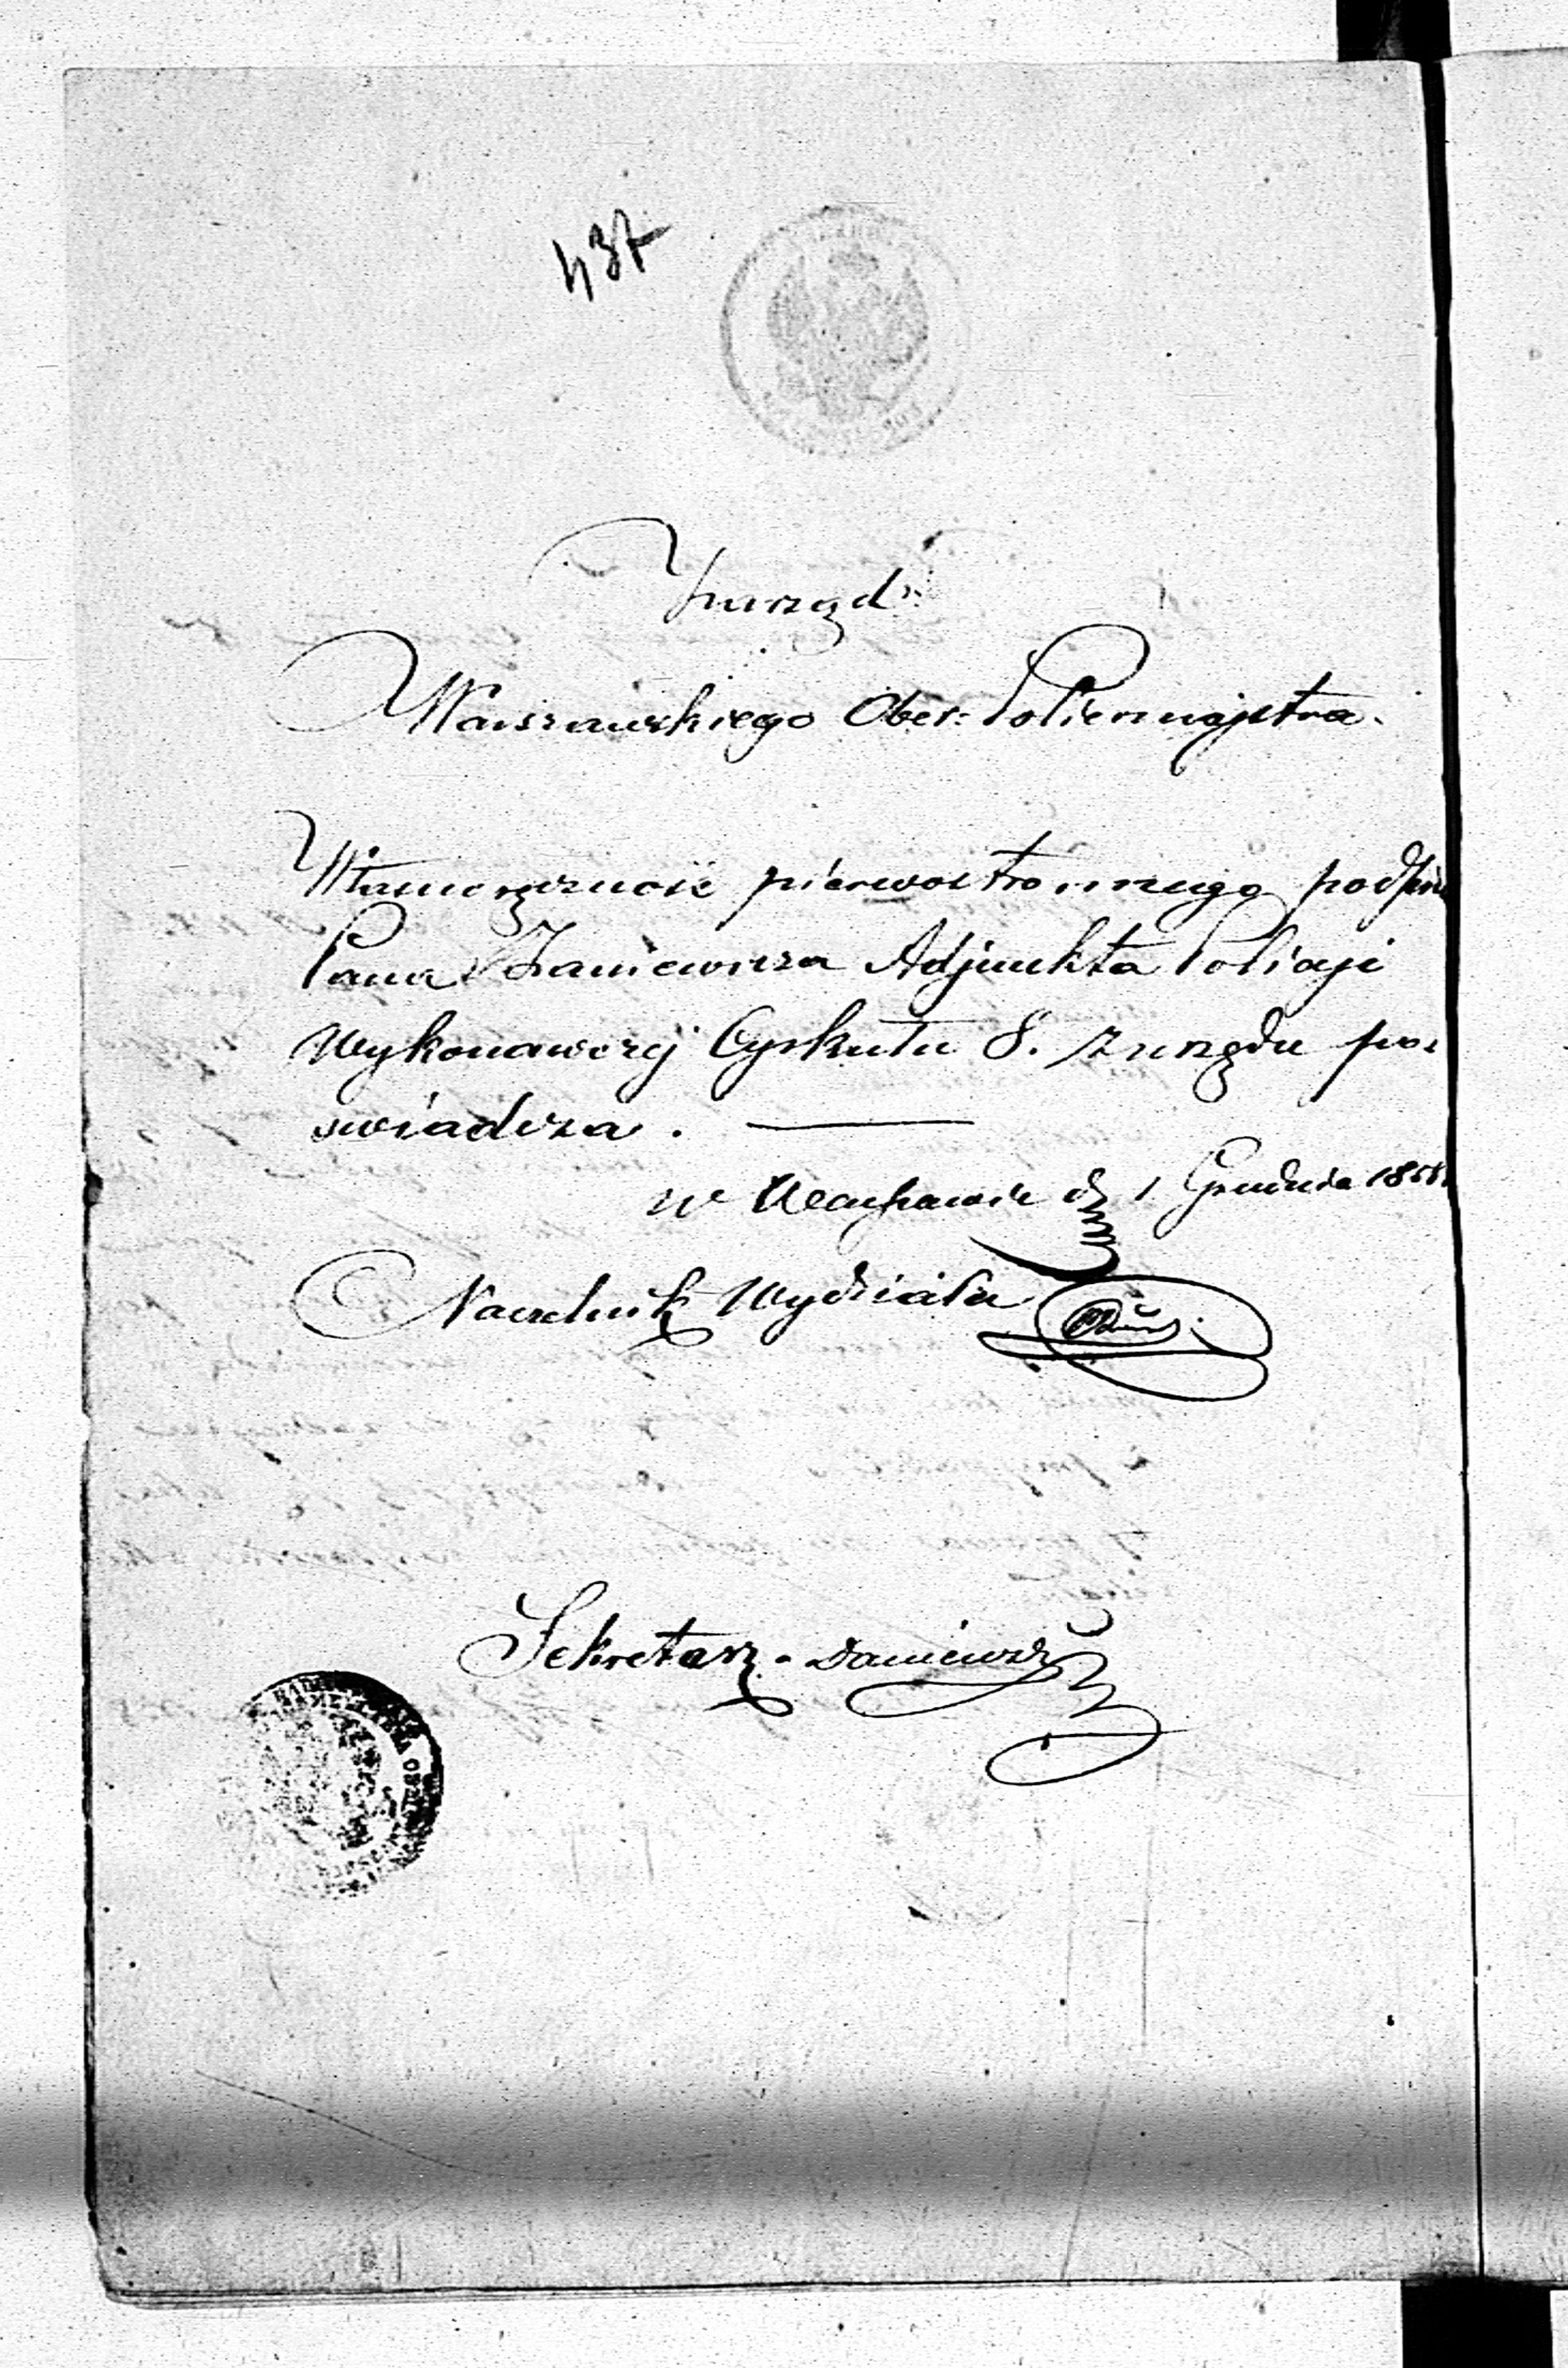 437
Urząd
Warszawskiego Ober-Policmajstra.
Własnoręczność pierwostronnego podpisu
Pana Janiewicza Adjunkta Policyi
Wykonawczéj Cyrkułu 8. z urzędu po-
świadcza. —
w Warszawie d 1 Grudnia
Naczelnik Wydziału
Sekretarz